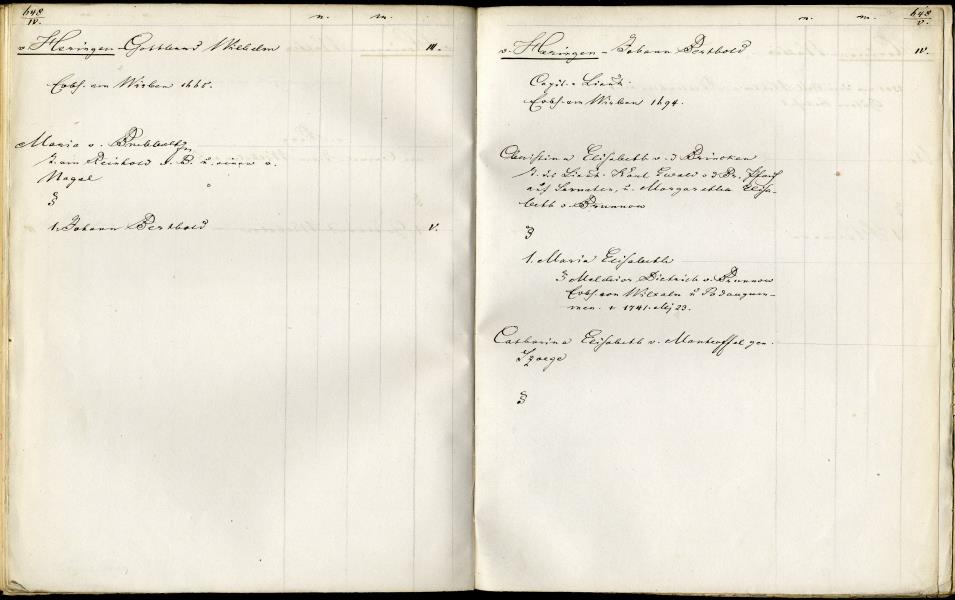 648
IV.
n. m.
v. Heringen - Gotthard Wilhelm III.
Erbh. am Wirben 1665.
Maria v.
T. am Reinhold v. B. u. einer v.
Nagel
§
1. Johann Berthold V.
n. m.
648
V.
v. Heringen - Johann Berthold IV.
Capit. Lieut.
Erbh. am Wirben 1694.
Christina Elisabeth v. d. Brincken
T. des Lieut. Karl Ewald v. d. Br.
auf Sernaten, u. Margaretha Elisa-
beth v. Brunnow
§
1. Maria Elisabeth
§ Melchior Dietrich v. Brunnow
Erbh. von Wilxaln u.
men. † 1741. Mrz 23.
Catharina Elisabeth v. Manteuffel gen.
Szoege
§